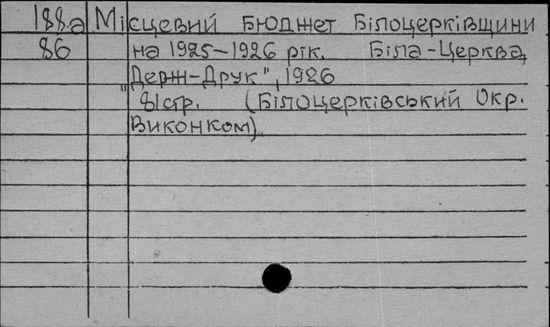 188.а Місцевий Бюджет Білоцерківщини
86 на 1925–1926 рік. Біла-Церква,
„Держ-Друк", 1926
81стр. (Білоцерківський Окр.
Виконком).